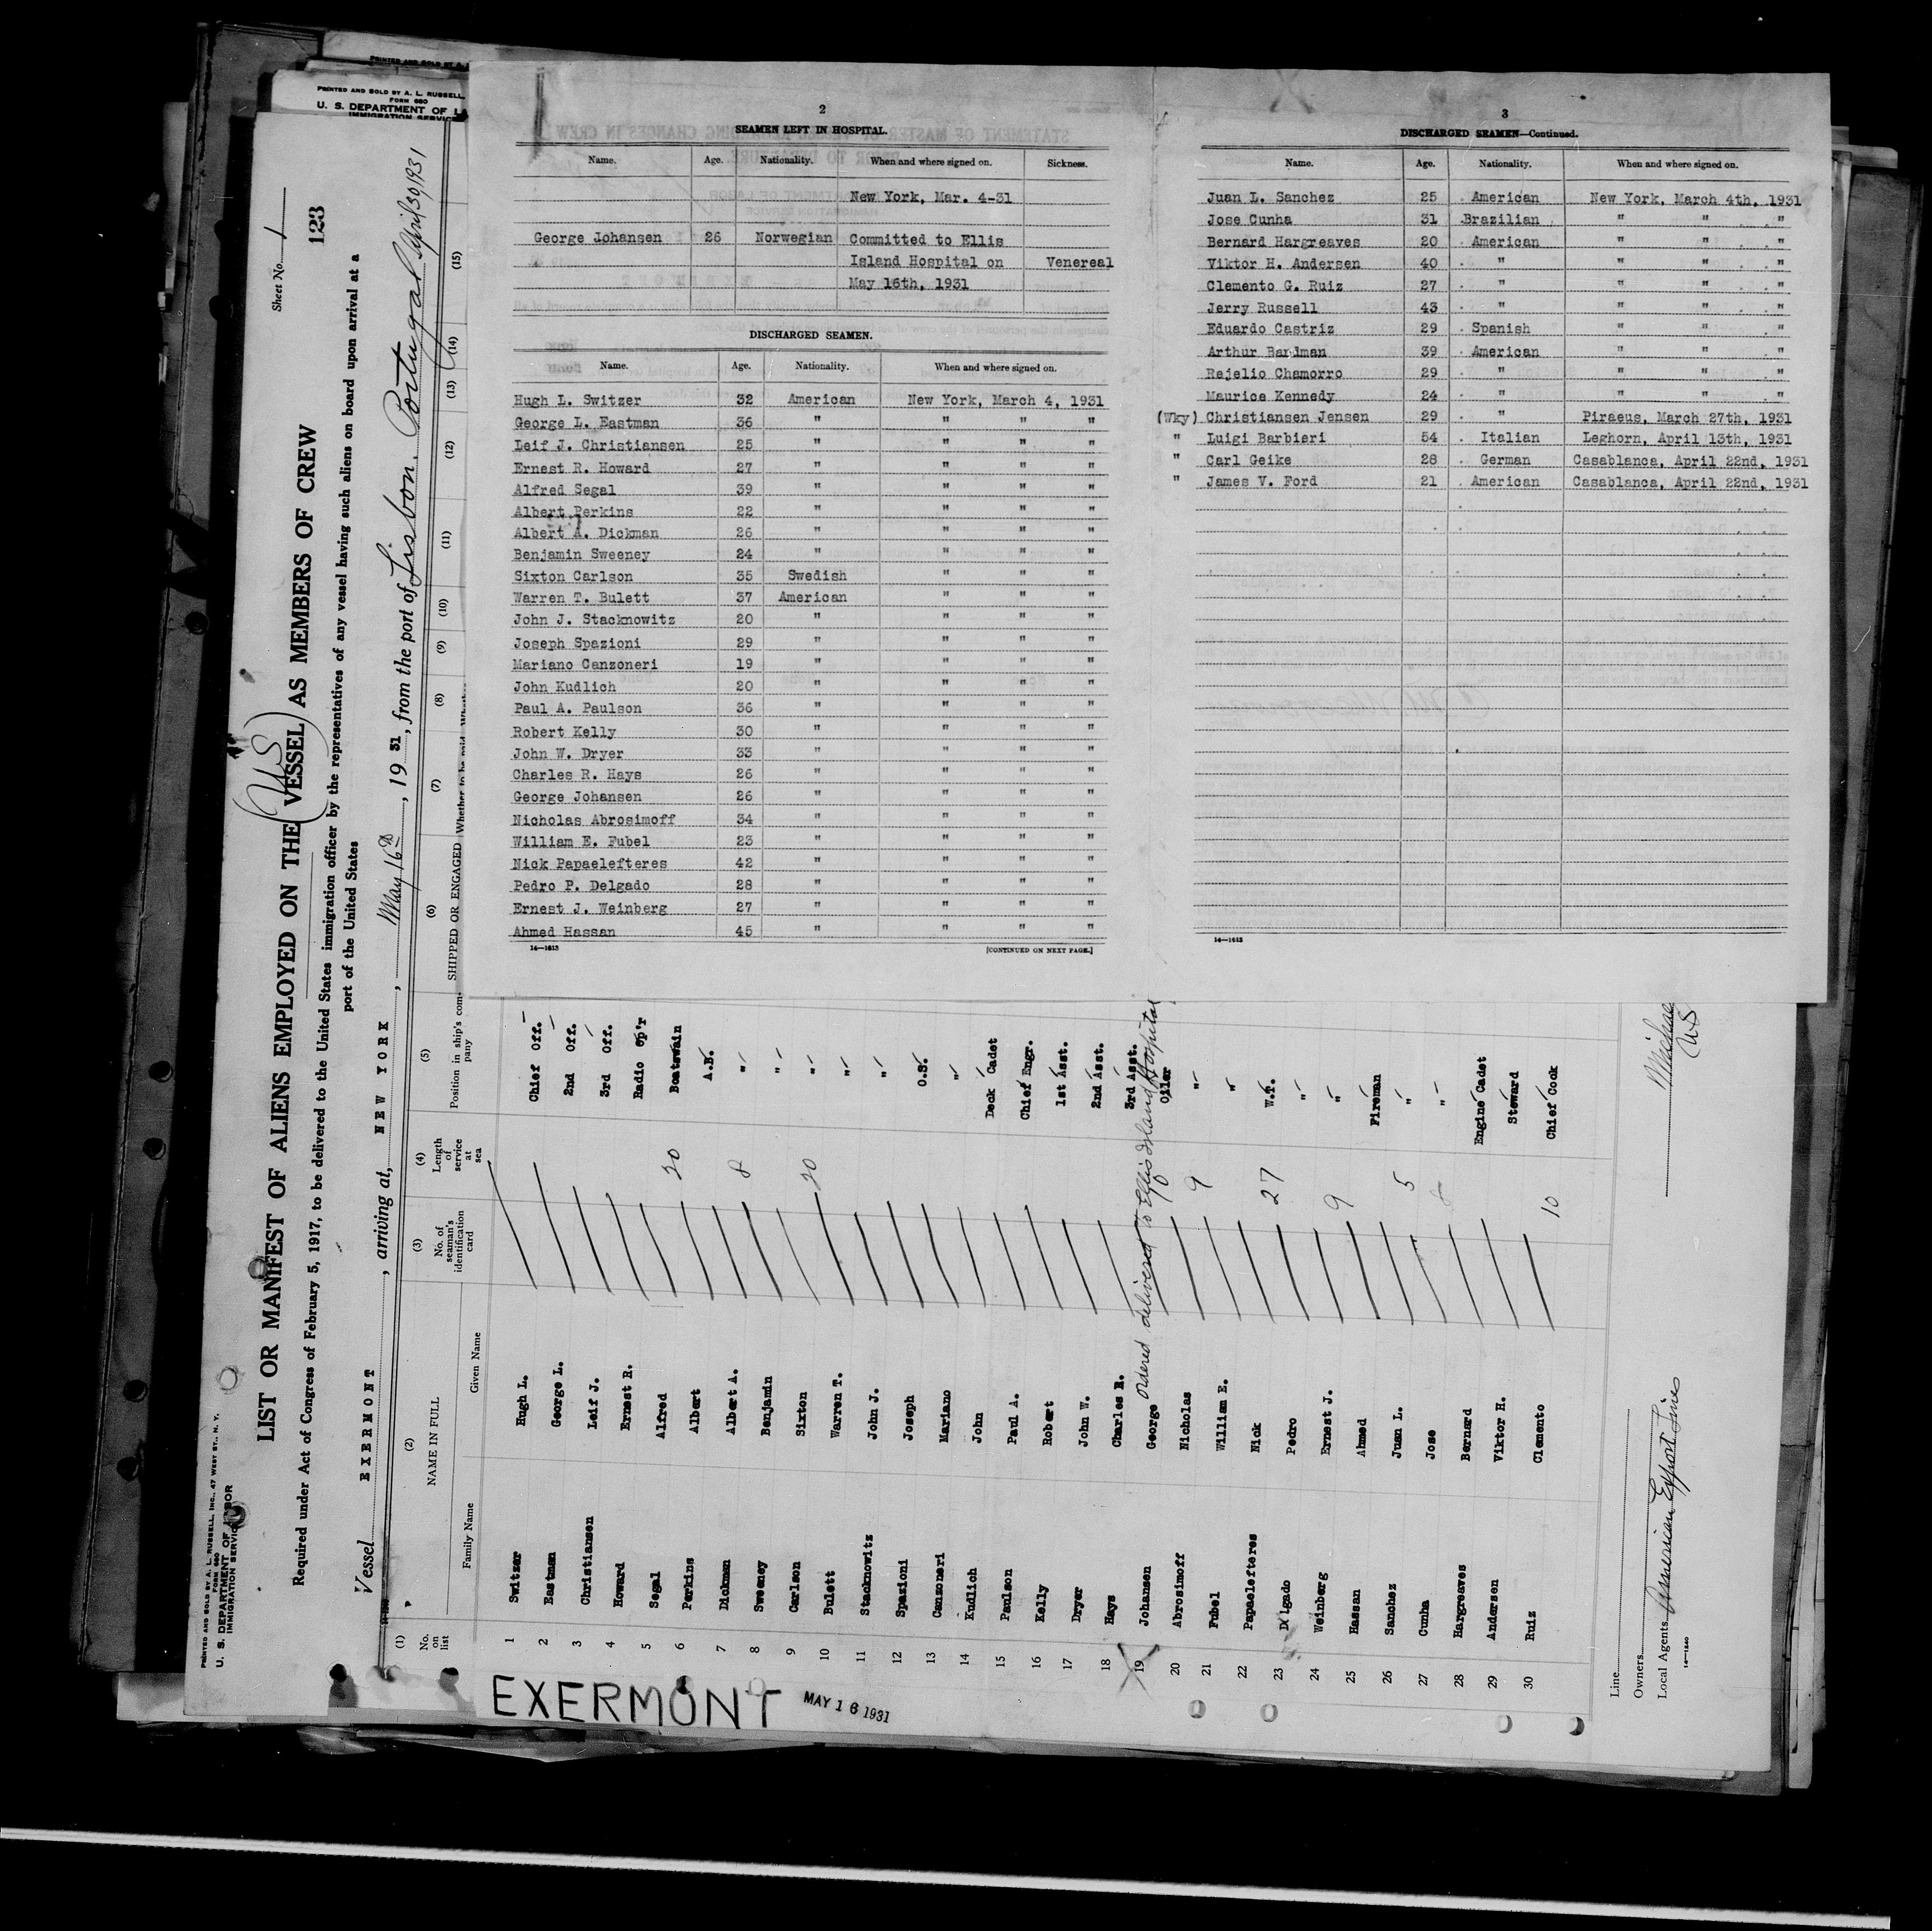 PRINTED AND SOLD BY A. L. RUSSELL,
FORM 680
U. S. DEPARTMENT OF LA
IMMIGRATION SERVICE
2
SEAMEN LEFT IN HOSPITAL.
Name. Age. Nationality. When and where signed on. Sickness.
New York, Mar. 4-31
George Johansen 26 Norwegian Committed to Ellis
Island Hospital on Venereal
May 16th, 1931
DISCHARGED SEAMEN.
Name. Age. Nationality. When and where signed on.
Hugh L. Switzer 32 American New York, March 4, 1931
George L. Eastman 36 " " " "
Leif J. Christiansen 25 " " " "
Ernest R. Howard 27 " " " "
Alfred Segal 39 " " " "
Albert Perkins 22 " " " "
Albert A. Dickman 26 " " " "
Benjamin Sweeney 24 " " " "
Sixton Carlson 35 Swedish " " "
Warren T. Bulett 37 American " " "
John J. Stacknowitz 20 " " " "
Joseph Spazioni 29 " " " "
Mariano Canzoneri 19 " " " "
John Kudlich 20 " " " "
Paul A. Paulson 36 " " " "
Robert Kelly 30 " " " "
John W. Dryer 33 " " " "
Charles R. Hays 26 " " " "
George Johansen 26 " " " "
Nicholas Abrosimoff 34 " " " "
William E. Fubel 23 " " " "
Nick Papaelefteres 42 " " " "
Pedro P. Delgado 28 " " " "
Ernest J. Weinberg 27 " " " "
Ahmed Hassan 45 " " " "
14—1613 [CONTINUED ON NEXT PAGE.]
3
DISCHARGED SEAMEN—Continued.
Name. Age. Nationality. When and where signed on.
Juan L. Sanchez 25 American New York, March 4th, 1931
Jose Cunha 31 Brazilian " " "
Bernard Hargreaves 20 American " " "
Viktor H. Andersen 40 " " " "
Clemento G. Ruiz 27 " " " "
Jerry Russell 43 " " " "
Eduardo Castriz 29 Spanish " " "
Arthur Bardman 39 American " " "
Rejelio Chamorro 29 " " " "
Maurice Kennedy 24 " " " "
(Wky) Christiansen Jensen 29 " Piraeus, March 27th, 1931
" Luigi Barbieri 54 Italian Leghorn, April 13th, 1931
" Carl Geike 28 German Casablanca, April 22nd, 1931
" James V. Ford 21 American Casablanca, April 22nd, 1931
14—1613
PRINTED AND SOLD BY A. L. RUSSELL, INC., 47 WEST ST., N. Y.
FORM 680
U. S. DEPARTMENT OF LABOR
IMMIGRATION SERVICE
Sheet No. 1
123
(US)
LIST OR MANIFEST OF ALIENS EMPLOYED ON THE VESSEL AS MEMBERS OF CREW
Required under Act of Congress of February 5, 1917, to be delivered to the United States immigration officer by the representatives of any vessel having such aliens on board upon arrival at a
port of the United States
Vessel EXERMONT, arriving at, NEW YORK, May 16th, 1931, from the port of Lisbon. Portugal April 30, 1931
(1) (2) (3) (4) (5) (6) (7) (8) (9) (10) (11) (12) (13) (14) (15)
No. on list NAME IN FULL No. of seaman's identification card Length of service at sea Position in ship's company SHIPPED OR ENGAGED
Family Name Given Name
1 Switzer Hugh L. Chief Off.
2 Eastman George L. 2nd Off.
3 Christiansen Leif J. 3rd Off.
4 Howard Ernest R. Radio Op'r
5 Segal Alfred 20 Boatswain
6 Perkins Albert A.B.
7 Dickman Albert A. 8 "
8 Sweeney Benjamin "
9 Carlson Sixton 20 "
10 Bulett Warren T. "
11 Stacknowitz John J. "
12 Spazioni Joseph O.S.
13 Canzoneri Mariano "
14 Kudlich John Deck Cadet
15 Paulson Paul A. Chief Engr.
16 Kelly Robert 1st Asst.
17 Dryer John W. 2nd Asst.
18 Hays Charles R. 3rd Asst.
Ordered delivered to Ellis Island Hospital
19 Johansen George 10 Oiler
20 Abrosimoff Nicholas 9 "
21 Fubel William E. "
22 Papaelefteres Nick 27 W.T.
23 Delgado Pedro "
24 Weinberg Ernest J. 9 "
25 Hassan Ahmed Fireman
26 Sanchez Juan L. 5 "
27 Cunha Jose 8 "
28 Hargreaves Bernard Engine Cadet
29 Andersen Viktor H. Steward
30 Ruiz Clemento 10 Chief Cook
Line
Owners
Local Agents American Export Lines
14—1240
Michael
US
EXERMONT MAY 16 1931